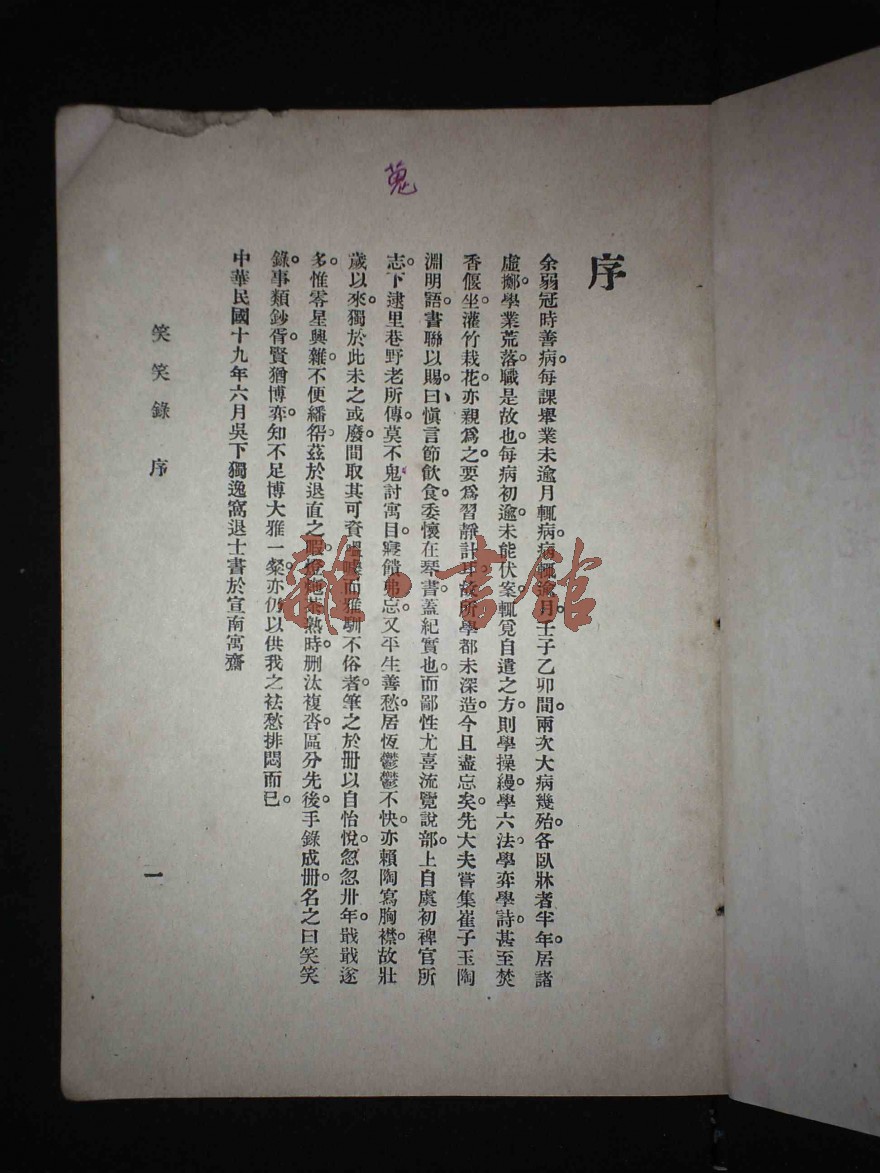 序
余弱冠時善病。每課舉業未逾月輒病。病輒流月。壬子乙卯間。兩次大病幾殆。各臥牀者半年。居諸
虛擲。學業荒落。職是故也。每病初逾。未能伏案。輒覓自遣之方。則學操縵。學六法。學弈學詩。甚至焚
香偃坐。灌竹栽花。亦親爲之。要爲習靜計耳。故所學都未深造。今且盡忘矣。先大夫嘗集崔子玉陶
淵明語。書聯以賜。曰、愼言節飮食。委懷在琴書。蓋紀實也。而鄙性尤喜流覽說部。上自虞初稗官所
志。下逮里巷野老所傳。莫不鬼討寓目。寢饋弗忘。又平生善愁。居恆鬱鬱不快。亦賴陶寫胸襟。故壯
歲以來。獨於此未之或廢。間取其可資嗢噱而雅馴不俗者。筆之於册以自怡悅。忽忽卅年。戢戢遂
多。惟零星與雜。不便繙帋。茲於退直之暇。燈炧茶熟時。删汰複沓。區分先後。手錄成册。名之曰笑笑
錄。事類鈔胥。賢猶博弈。知不足博大雅一粲。亦仍以供我之袪愁排悶而已。
中華民國十九年六月吳下獨逸窩退士書於宣南寓齋
笑笑錄 序
一
雜·書館